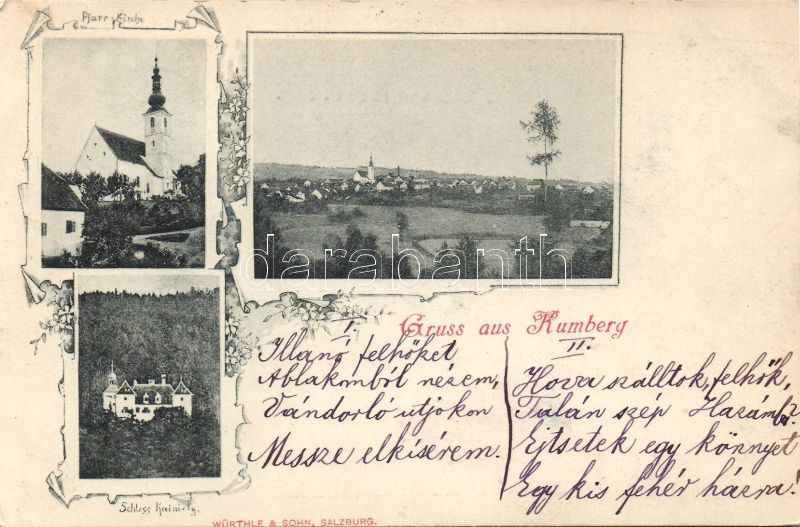 Pfarr-Kirche
Gruss aus Kumberg
I.
Illanó felhőket
Ablakmból nézem,
Vándorló utjokon
Messze elkísérem.
II.
Hova szálltok, felhők,
Talán szép Hazámba?
Ejtsetek egy könnyet
Egy kis fehér házra!
Schloss Kainberg.
WÜRTHLE & SOHN, SALZBURG.
darabanth